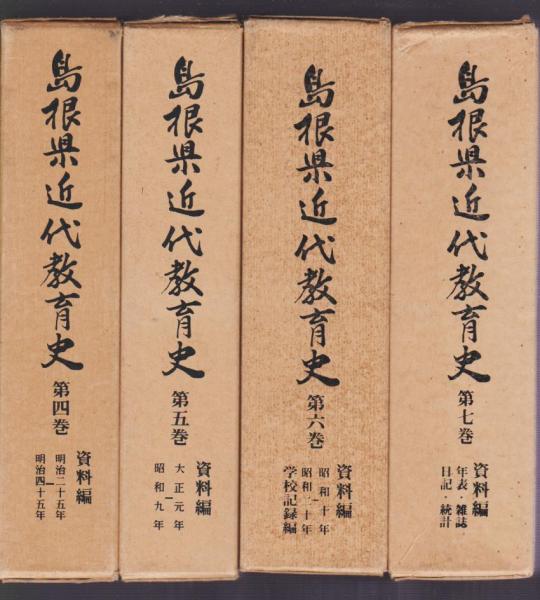 島根県近代教育史
第四巻
資料編
明治二十五年
|
明治四十五年
島根県近代教育史
第五巻
資料編
大正元年
|
昭和九年
島根県近代教育史
第六巻
資料編
昭和十年
|
昭和二十年
学校記録編
島根県近代教育史
第七巻
資料編
年表・雑誌
日記・統計